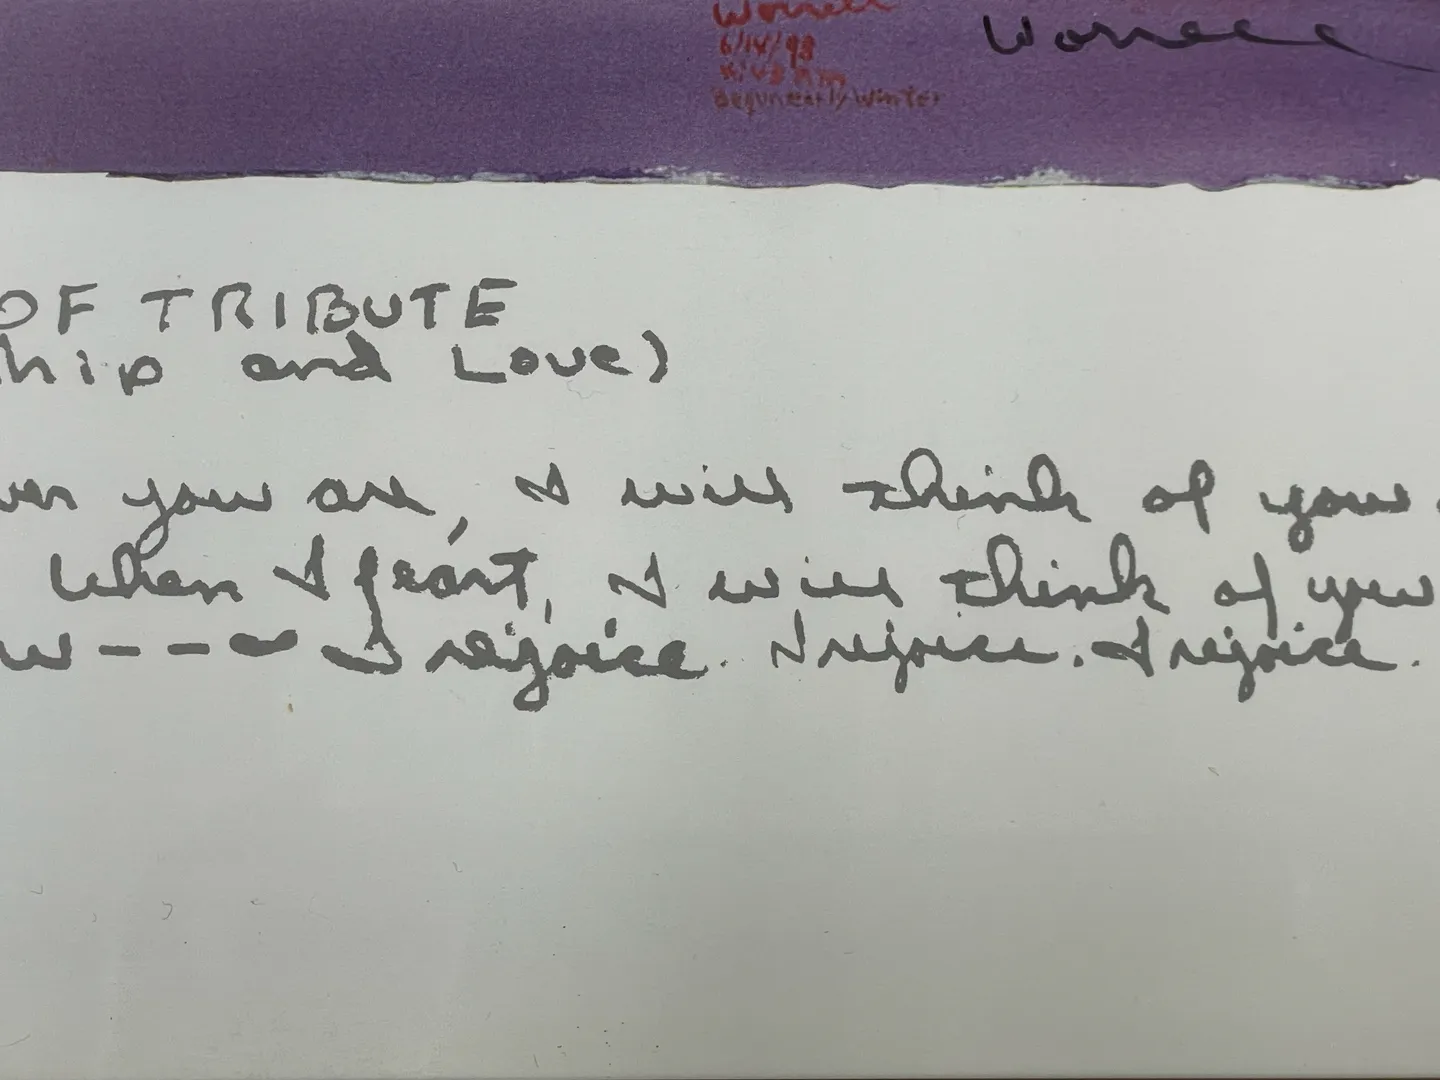 Worrell
6/14/98
Begun early Winter
Worrell
OF TRIBUTE
hip and Love)
ver you are, I will think of you
When I feast, I will think of you
--- I rejoice. I rejoice. I rejoice.